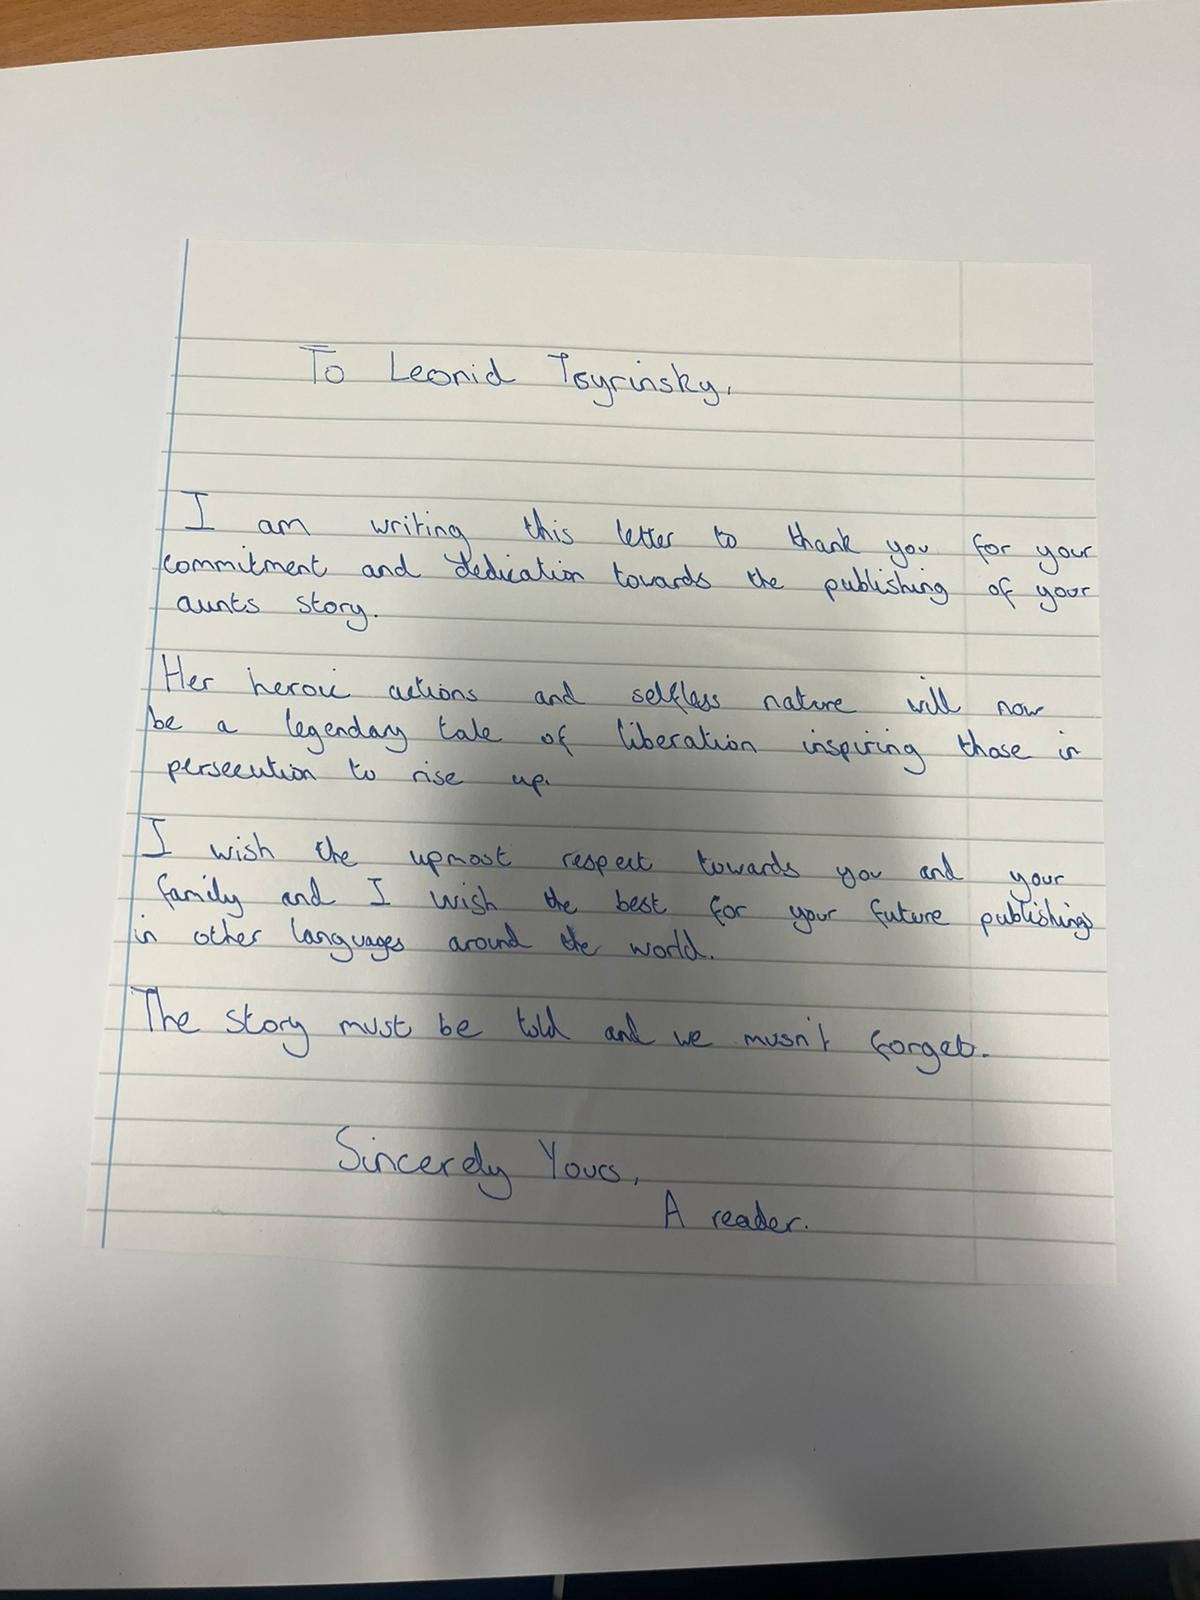 To Leonid Tsyrinsky,
I am writing this letter to thank you for your
commitment and dedication towards the publishing of your
aunts story.
Her heroic actions and selfless nature will now
be a legendary tale of liberation inspiring those in
persecution to rise up.
I wish the upmost respect towards you and your
family and I wish the best for your future publishings
in other languages around the world.
The story must be told and we musn't forget.
Sincerely Yours,
A reader.